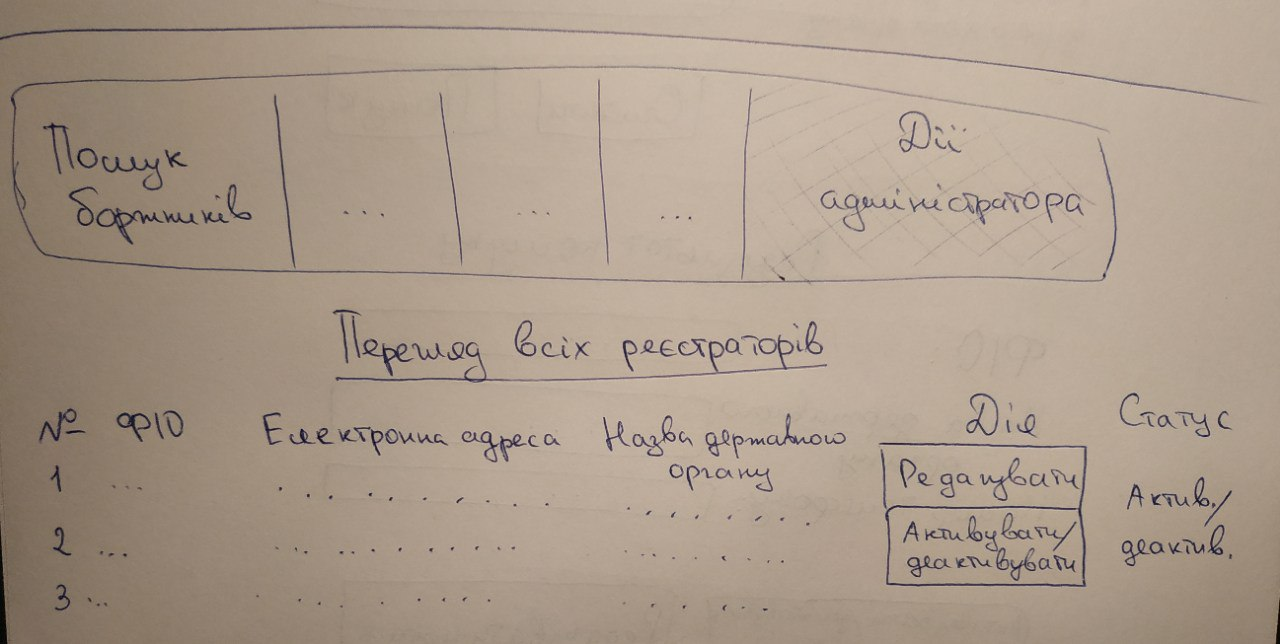 Пошук
боржників
...
...
...
Дії
адміністратора
Перегляд всіх реєстраторів
№ ФІО Електронна адреса Назва державного органу Дія Статус
1 ... Редагувати Актив./
2 ... Активувати/ деактив.
деактивувати
3 ...